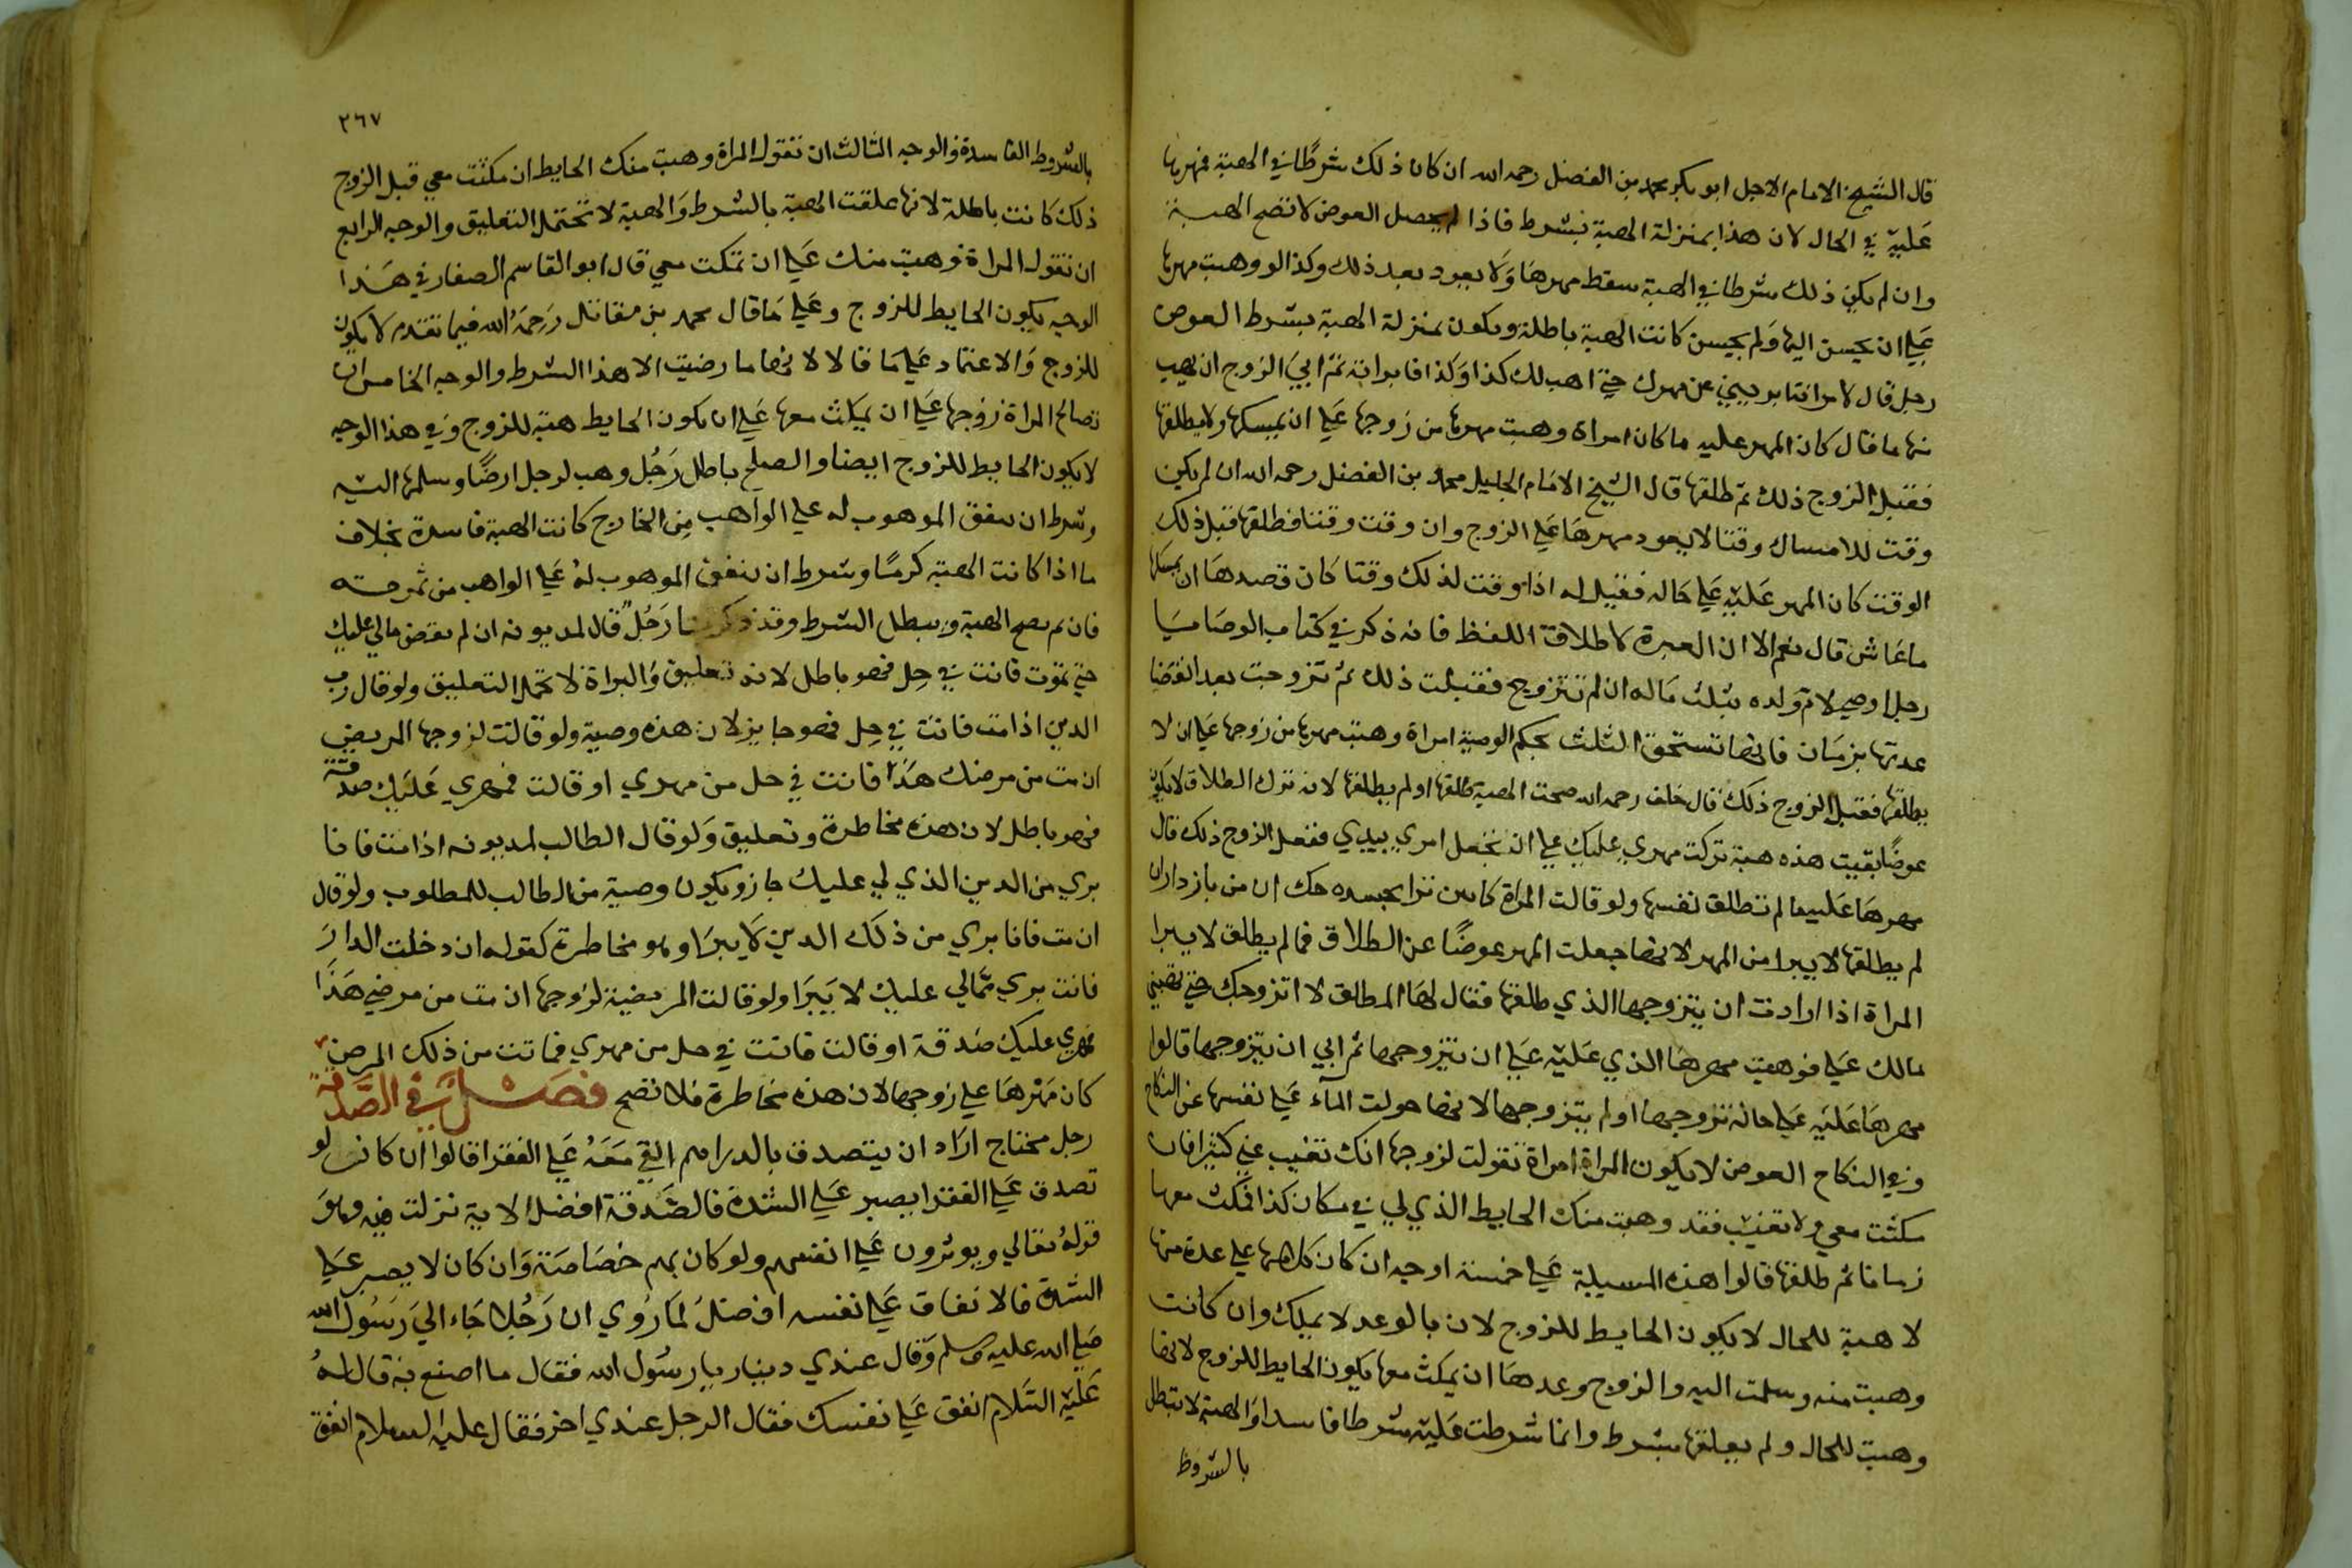 قال الشيخ الامام الاجل ابو بكر محمد بن الفضل رحمه الله ان كان ذلك شرطا في الهبة فمهرها
عليه في الحال لان هذا بمنزلة الهبة بشرط فاذا لم يحصل العوض لا تصح الهبة
وان لم يكن ذلك شرطا في الهبة سقط مهرها ولا يعود بعد ذلك وكذا لو وهبت مهرها
علي ان يحسن اليها ولم يحسن كانت الهبة باطلة ويكون بمنزلة الهبة بشرط العوض
رجل قال لامراته ابرييني عن مهرك حتي اهب لك كذا وكذا فابراته ثم ابي الزوج ان يهب
منها ما قال كان المهر عليه ما كان امراة وهبت مهرها من زوجها علي ان يمسكها ولا يطلقها
فقبل الزوج ذلك ثم طلقها قال الشيخ الامام الجليل محمد بن الفضل رحمه الله ان لم يكن
وقت للامساك وقتا لا يعود مهرها علي الزوج وان وقت وقتا فطلقها قبل ذلك
الوقت كان المهر عليه علي حاله فقيل له اذا وقت لذلك وقتا كان قصدها ان يمسكها
ما عاش قال نعم الا ان العبرة لاطلاق اللفظ فانه ذكر في كتاب الوصايا
رجل اوصي لام ولده بثلث ماله ان لم تتزوج فقبلت ذلك ثم تزوجت بعد انقضا
عدتها بزمان فانها تستحق الثلث بحكم الوصية امراة وهبت مهرها من زوجها علي ان لا
يطلقها فقبل الزوج ذلك قال خلف رحمه الله صحت الهبة طلقها او لم يطلقها لان ترك الطلاق لا يكون
عوضا بقيت هذه هبة تركت مهري عليك علي ان تجعل امري بيدي ففعل الزوج ذلك قال
مهرها عليه ما لم تطلق نفسها ولو قالت المراة كابين ترا بخشيدم حك ان من باز دار ان
لم يطلقها لا يبرا من المهر لانها جعلت المهر عوضا عن الطلاق فما لم يطلق لا يبرا
المراة اذا ارادت ان يتزوجها الذي طلقها فقال لها المطلق لا اتزوجك حتي تهبيني
مالك علي فوهبت مهرها الذي عليه علي ان يتزوجها ثم ابي ان يتزوجها قالوا
مهرها عليه علي حاله تزوجها او لم يتزوجها لانها حولت المال علي نفسها عن النكاح
وفي النكاح العوض لا يكون المراة امراة تقولت لزوجها انك تغيب عني كثيرا فان
مكثت معي ولا تغيب فقد وهبت منك الحايط الذي لي في مكان كذا فمكث معها
زمانا ثم طلقها قالوا هذه المسيلة علي خمسة اوجه ان كان كل هما علي عدة منها
لا هبة للحال لا يكون الحايط للزوج لان بالوعد لا يملك وان كانت
وهبت منه وسلمت اليه والزوج وعدها ان يمكث معها يكون الحايط للزوج لانها
وهبت للحال ولم يعلقها بشرط وانما شرطت عليه شرطا فاسدا والهبة لا تبطل
بالشروط
٢٦٧
بالشروط الفاسدة والوجه الثالث ان تقول المراة وهبت منك الحايط ان مكثت معي قبل الزوج
ذلك كانت باطلة لانها علقت الهبة بالشرط والهبة لا تحتمل التعليق والوجه الرابع
ان تقول المراة وهبت منك علي ان تمكث معي قال ابو القاسم الصفار في هذا
الوجه يكون الحايط للزوج وعلي ما قال محمد بن مقاتل رحمه الله فيما تقدم لا يكون
للزوج والاعتماد علي ما قالا لانها ما رضيت الا هذا الشرط والوجه الخامس ان
تصالح المراة زوجها علي ان يمكث معها علي ان يكون الحايط هبة للزوج وفي هذا الوجه
لا يكون الحايط للزوج ايضا والصلح باطل رجل وهب لرجل ارضا وسلمها اليه
وشرط ان ينفق الموهوب له علي الواهب من الخارج كانت الهبة فاسدة بخلاف
ما اذا كانت الهبة كرما وشرط ان ينفق الموهوب له علي الواهب من ثمرته
فان ثم يصح الهبة ويبطل الشرط وقد ذكرنا رجل قال لمديونه ان لم تقض مالي عليك
حتي تموت فانت في حل فهو باطل لانه تعليق والبراة لا تحتمل التعليق ولو قال رب
الدين اذا مت فانت في حل فهو جايز لان هذه وصية ولو قالت لزوجها المريض
ان مت من مرضك هذا فانت في حل من مهري او قالت فمهري عليك صدقة
فهو باطل لان هذه مخاطرة وتعليق ولو قال الطالب لمديونه اذا مت فانا
بري من الدين الذي لي عليك جاز ويكون وصية من الطالب للمطلوب ولو قال
ان مت فانا بري من ذلك الدين لا يبرا وهو مخاطرة كقوله ان دخلت الدار
فانت بري مما لي عليك لا يبرا ولو قالت المريضة لزوجها ان مت من مرضي هذا
فمهري عليك صدقة او قالت فانت في حل من مهري فماتت من ذلك المرض
كان مهرها علي زوجها لان هذه مخاطرة فلا تصح فصل في الصدقة
رجل محتاج اراد ان يتصدق بالدراهم التي معه علي الفقرا قالوا ان كان لو
تصدق علي الفقرا يصبر علي الشدة فالصدقة افضل الاية نزلت فيه وهو
قوله تعالي ويوثرون علي انفسهم ولو كان بهم خصاصة وان كان لا يصبر علي
الشدة فالانفاق علي نفسه افضل لما روي ان رجلا جاء الي رسول الله
صلي الله عليه وسلم وقال عندي دينار يا رسول الله فقال ما اصنع به قال له
عليه السلام انفق علي نفسك فقال الرجل عندي اخر فقال عليه السلام انفق